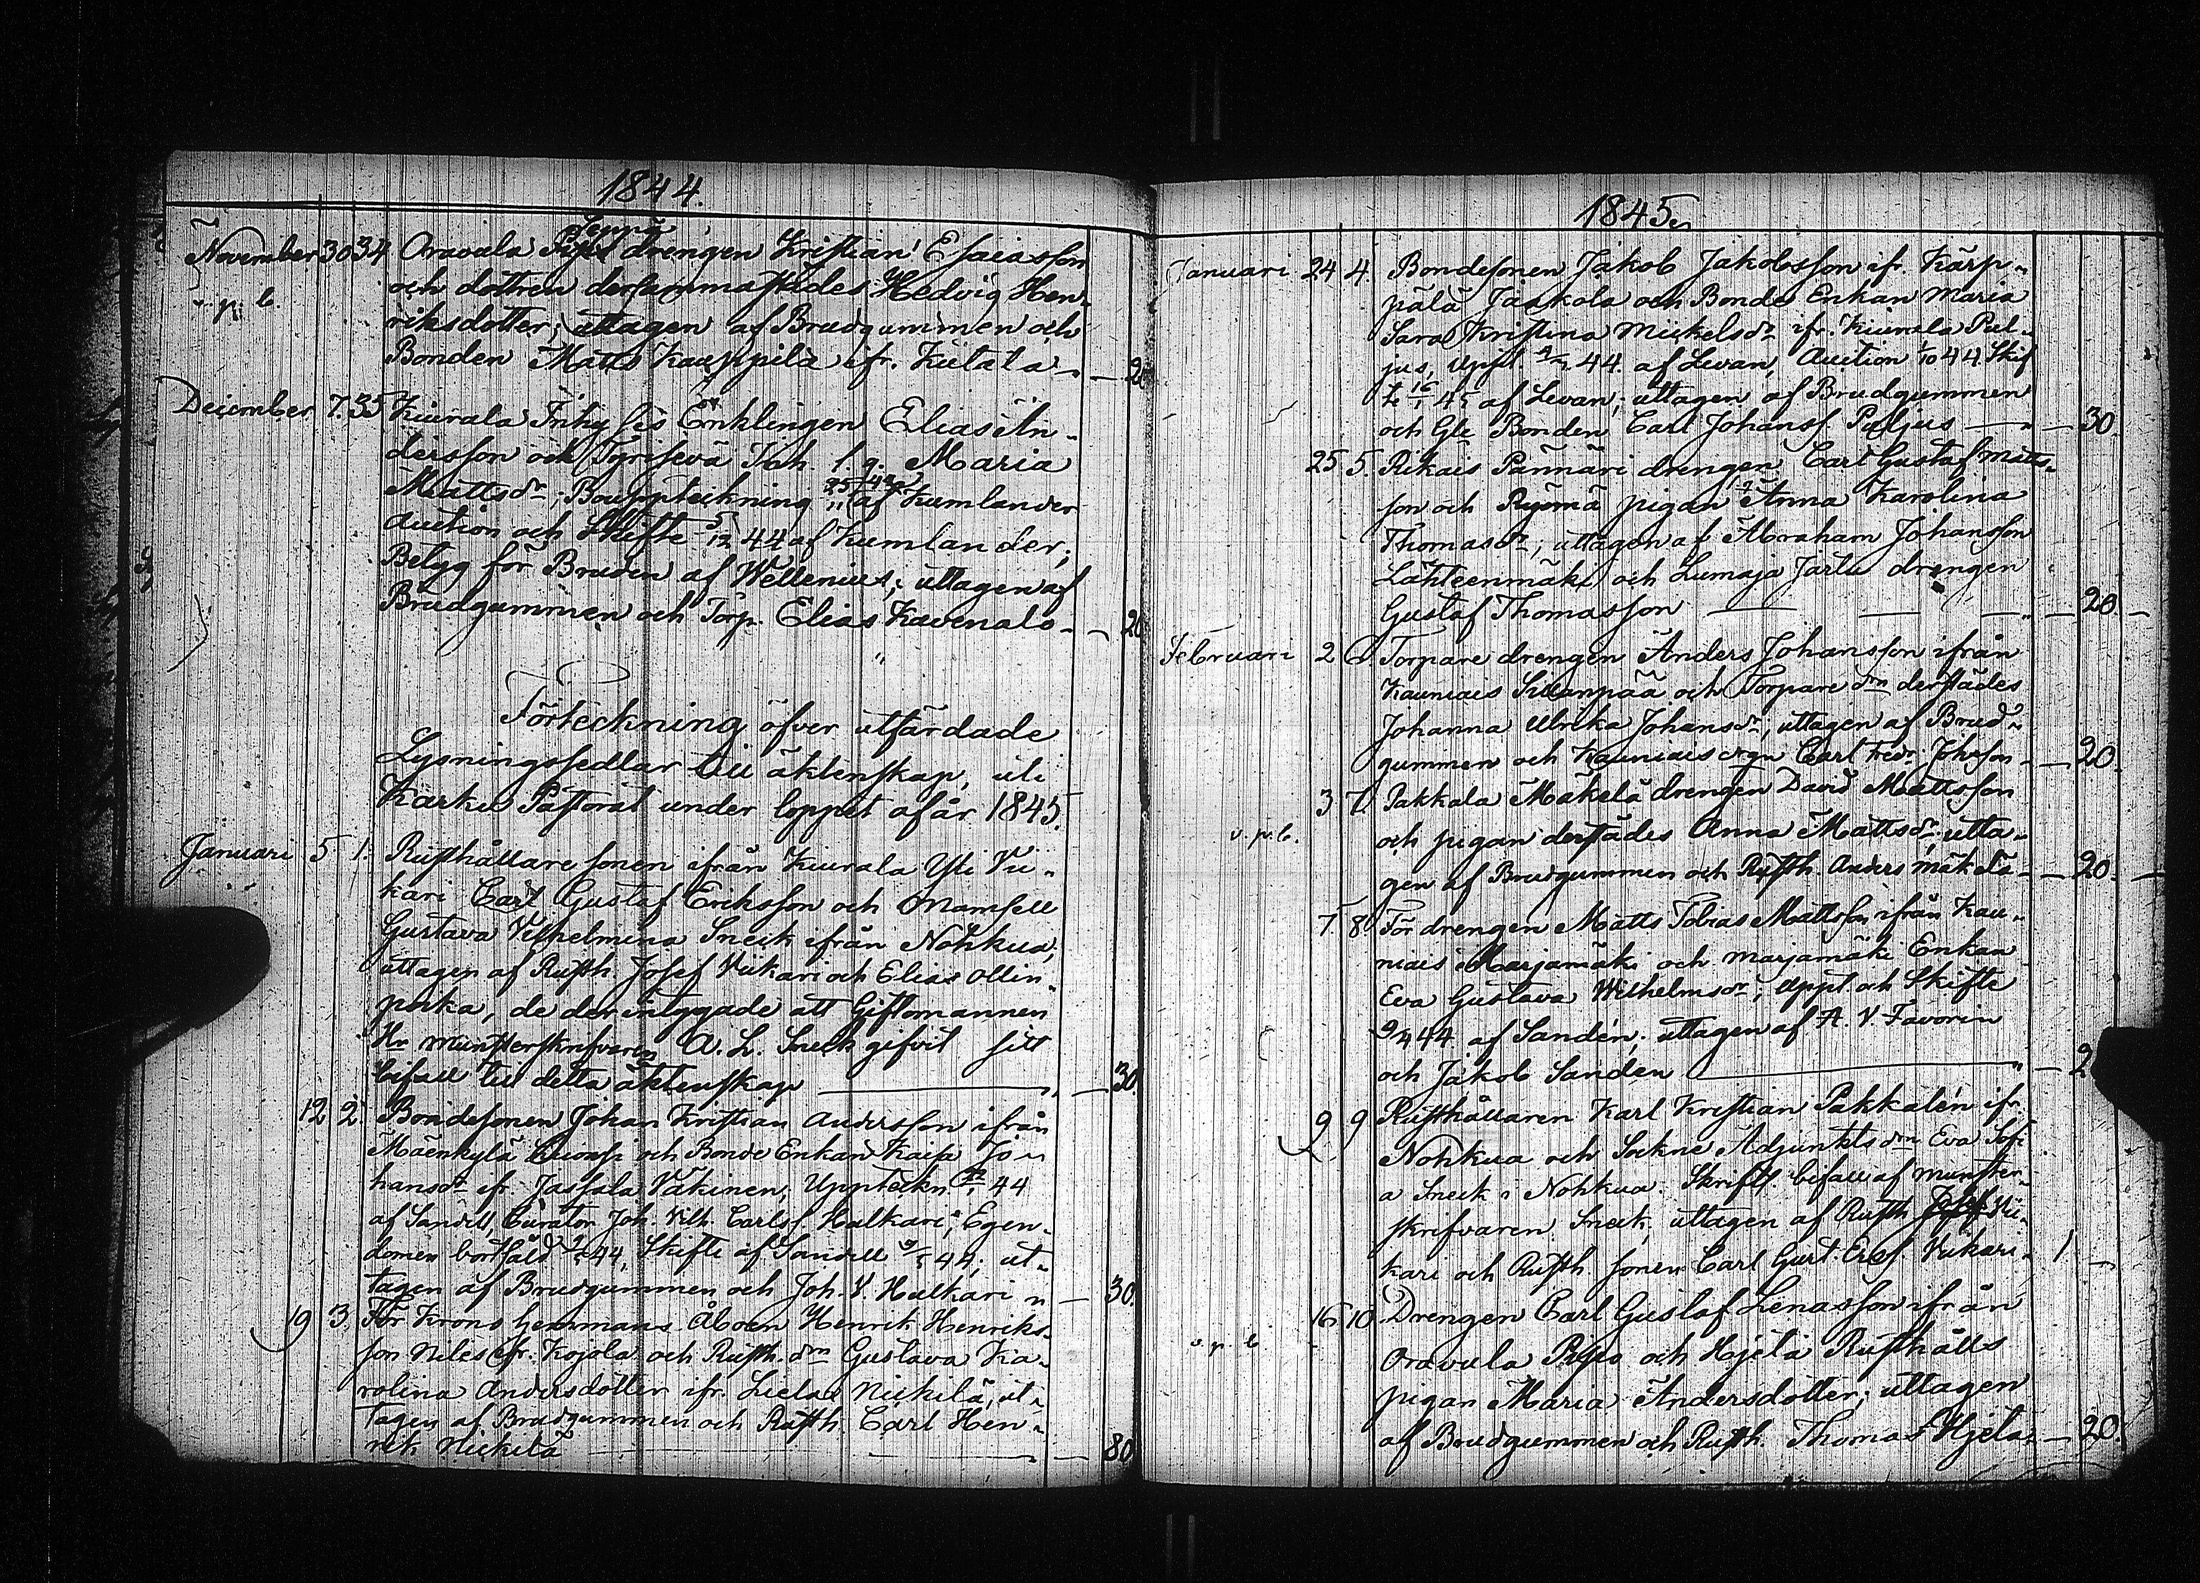 1844.
November 30 34 Oravala Seppä drengen Kristian Esaiasson
och dottren dersammastädes Hedvig Hen-
v. p. b.
riksdotter; uttagen af Brudgummen och
Bonden Matts Kauppila ifr. Kiitala — — 20
December 7. 35 Kiurala Enklingen Elias An-
dersson och Tyrisevä Joh. Maria
Mattsdr; Bouppteckning af Kumlander
Auction och Skifte 5/12 44 af Kumlander;
Betyg för Bruden af Wellenius; uttagen af
Brudgummen och Torp. Elias Kavenala — — 20
Förteckning öfver utfärdade
Lysningssedlar till äktenskap, uti
Karku Pastorat under loppet af år 1845.
Januari 5 1. Rusthållare sonen ifrån Kiurala Yli Vii-
kari Carl Gustaf Eriksson och Mamsell
Gustava Vilhelmina Sneck ifrån Nohkua,
uttagen af Rusth. Josef Viikari och Elias Ollin-
poika, de der intygade att Giftomannen
Hr Munsterskrifvaren A. L. Sneck gifvit sitt
bifall till detta äktenskap — — 30.
12 2. Bondesonen Johan Kristian Andersson ifrån
Mäenkylä och Bonde Enkan Kaisa Jo-
hansdr ifr. Jassala Vakinen, Uppteckn. 44
af Sandell, Curator Joh. Vilh. Carlss. Hulkari, Egen-
domen bortsåld 44, Skifte af Sandell 44; ut-
tagen af Brudgummen och Joh. V. Hulkari — 30.
19 3. För Krono hemmans Åboen Henrik Henriks-
son Niles ifr. Kojola och Rusth. drn Gustava Ka-
rolina Andersdotter ifr. Liela Nickilä, ut-
tagen af Brudgummen och Rusth. Carl Hen-
rik Nickilä — — 80
1845.
Januari 24 4. Bondesonen Jakob Jakobsson ifr. Kärp-
pälä Jaakola och Bonde Enkan Maria
Sara Kristina Mickelsdr ifr. Kiurala Pal-
jus, Uppt. 44 af Levan, Auction 44. Skif-
te 16/1 45 af Levan; uttagen af Brudgummen
och Gle Bonden Carl Johanss. Paljus — — 30.
25 5. Rikais Pännäri drengen Carl Gustaf Matts-
son och pigan Anna Karolina
Thomasdr; uttagen af Abraham Johansson
Lähteenmäki och Lumaja Jarlu drengen
Gustaf Thomasson — — 20 —
Februari 2 6 Torpare drengen Anders Johansson ifrån
Kauniais Suanpää och Torpare drn derstädes
Johanna Ulrika Johansdr; uttagen af Brud-
gummen och Kauniais Carl Fredr. Johsson — 20.
3 7. Pakkala Mäkelä drengen David Mattsson
v. p. b.
och pigan derstädes Anna Mattsdr; utta-
gen af Brudgummen och Rusth. Anders Mäkelä — 20. —
7. 8 För drengen Matts Tobias Mattsson ifrån Kau-
niais Marjamäki och Marjamäki Enkan
Eva Gustava Wilhelmsdr; Uppt. och Skifte
44 af Sandén; uttagen af A. V. Favorin
och Jakob Sandén — — 2
9 9 Rusthållaren Karl Kristian Pakkalén ifr.
Nohkua och Sockne Adjunkts drn Eva Sofi-
a Sneck i Nohkua. Skriftl bifall af Munster-
skrifvaren Sneck, uttagen af Rusth. Josef Vii-
kari och Rusth sonen Carl Gust. Erss. Viikari — 1 —
16 10 Drengen Carl Gustaf Lenasson ifrån
v. p. b.
Oravala Pispo och Hjela Rusthålls
pigan Maria Andersdotter; uttagen
af Brudgummen och Rusth. Thomas Hjela — 20.